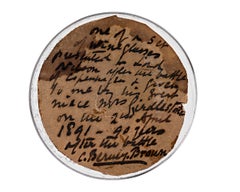 one of a set
of wine glasses
presented to Lord
Nelson after the battle
of Copenhagen & given
to me by my great
niece Mrs Girdlestone
on the 2nd April
1891 - 90 years
after the battle
C. Berney Brown